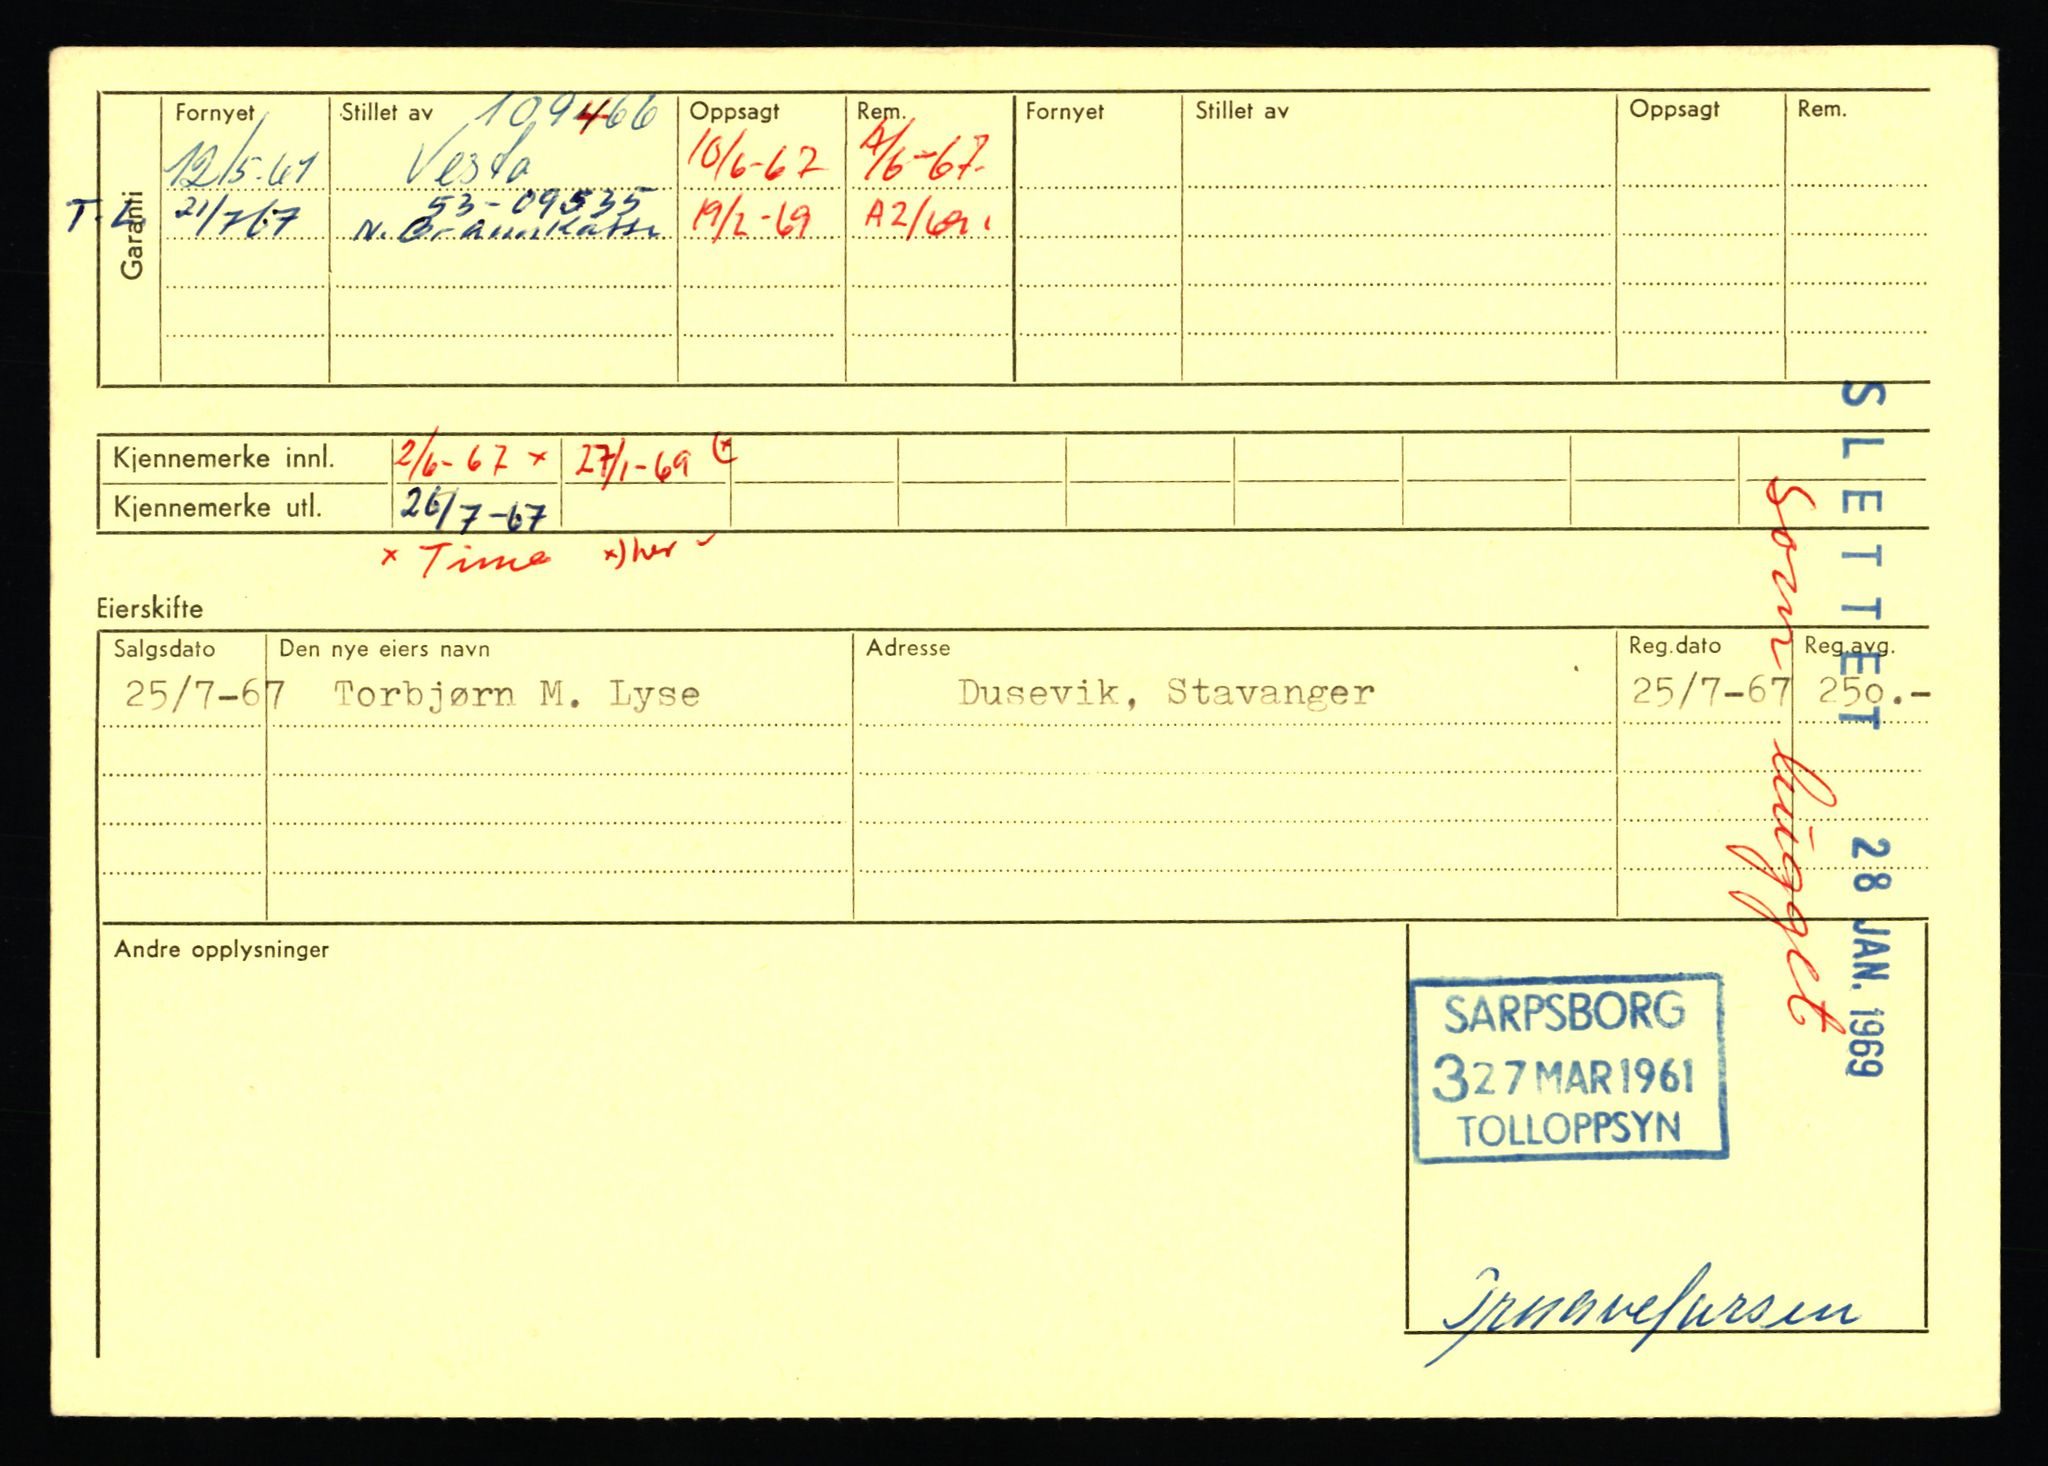 Garanti
Fornyet Stillet av Oppsagt Rem. Fornyet Stillet av Oppsagt Rem.
109466
12/5-61 Vesta 10/6-67 A/6-67.
53-09535
T. L. 21/7 67 N. Brannkasse A2/69.
Kjennemerke innl. 2/6-67 x 27/1-69 (x
Kjennemerke utl. 26/7-67
x Time x) her
Eierskifte
Salgsdato Den nye eiers navn Adresse Reg.dato Reg.avg.
25/7-67 Torbjørn M. Lyse Dusevik, Stavanger 25/7-67 250.-
SLETTET 28 JAN. 1969
Som hugget
Andre opplysninger
SARPSBORG
3 27 MAR 1961
TOLLOPPSYN